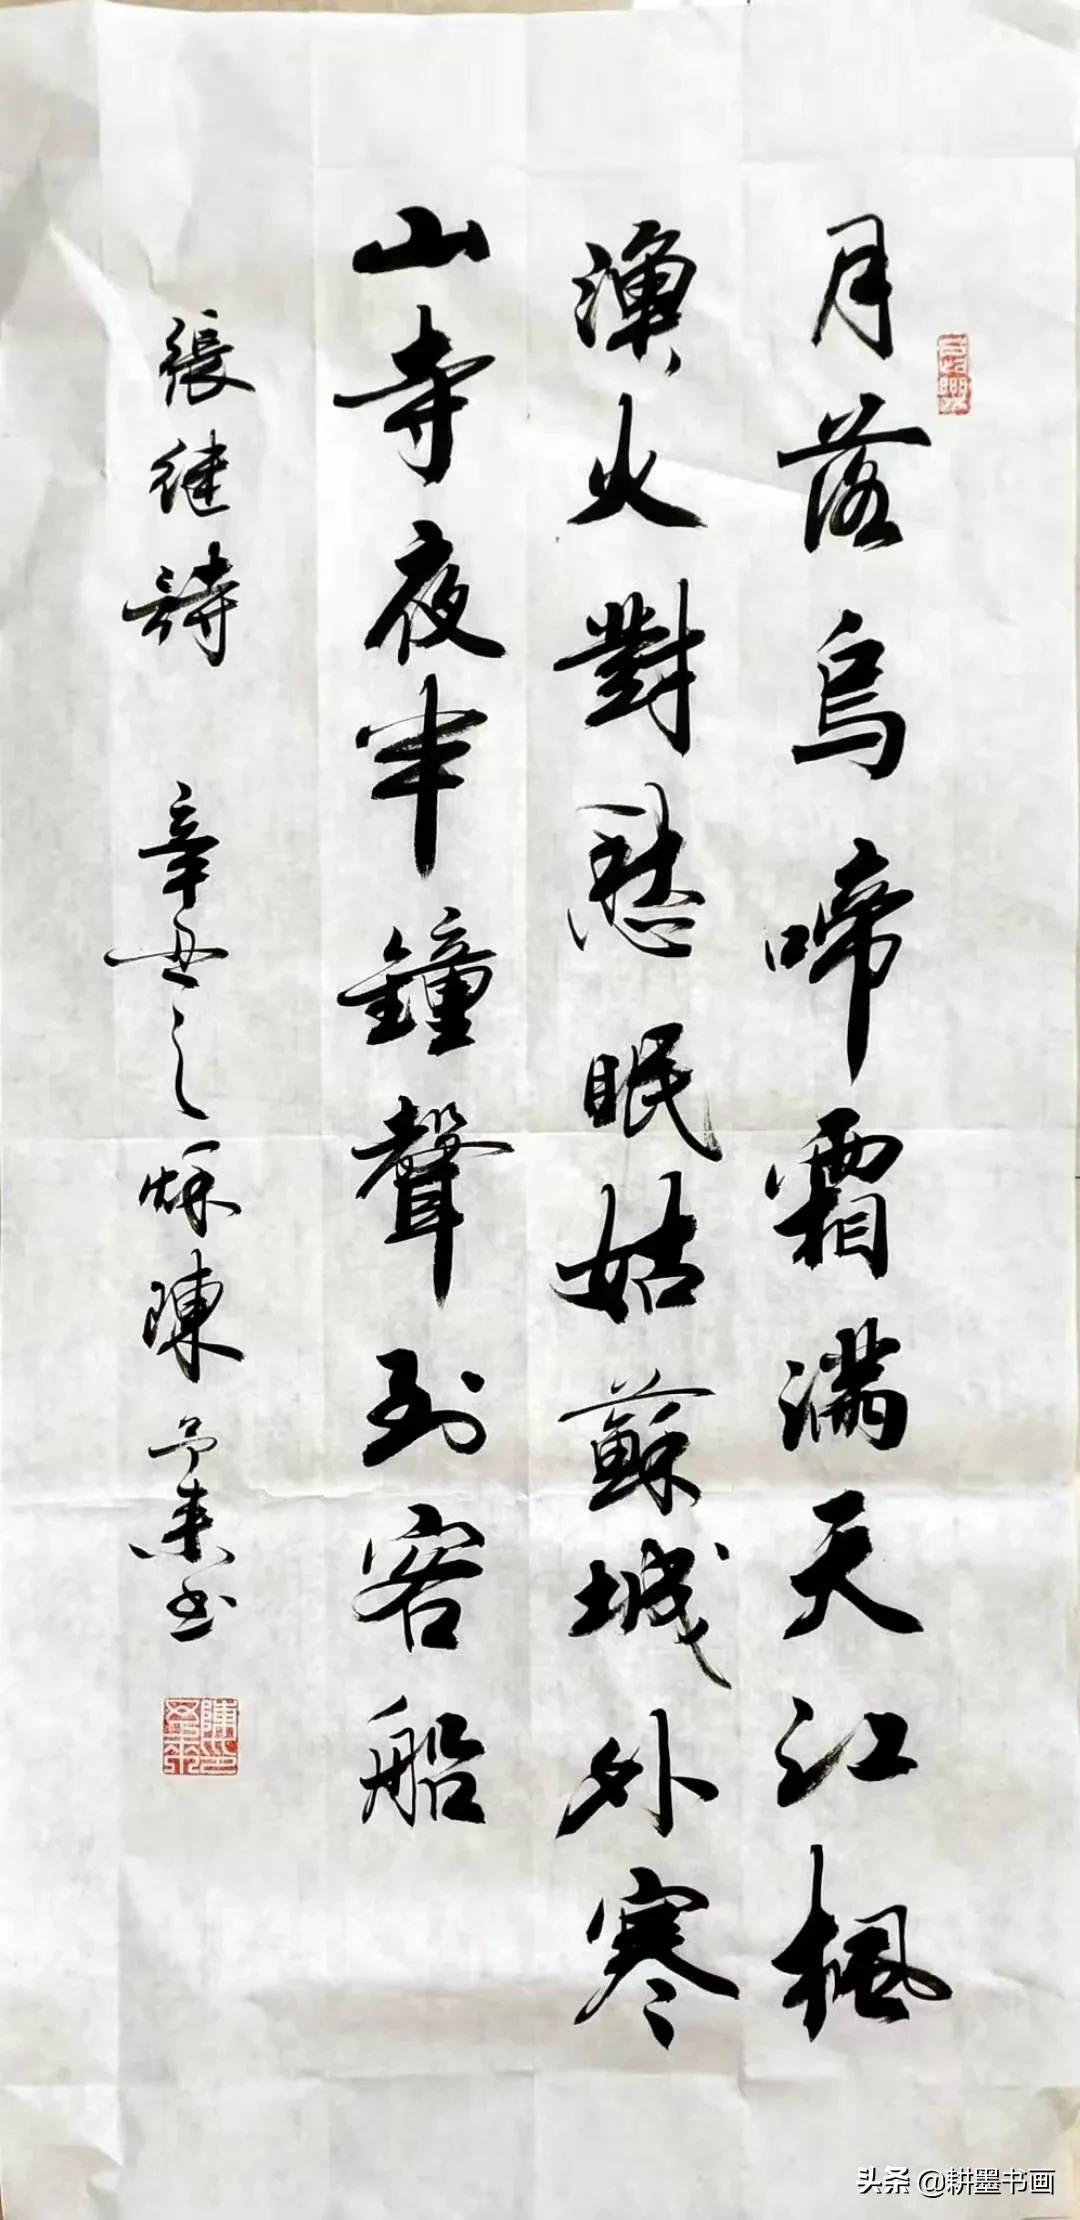 月落烏啼霜满天江楓
漁火對愁眠姑蘇城外寒
山寺夜半鐘聲到客船
張继詩 辛丑之秋陳予来书
头条 @耕墨书画